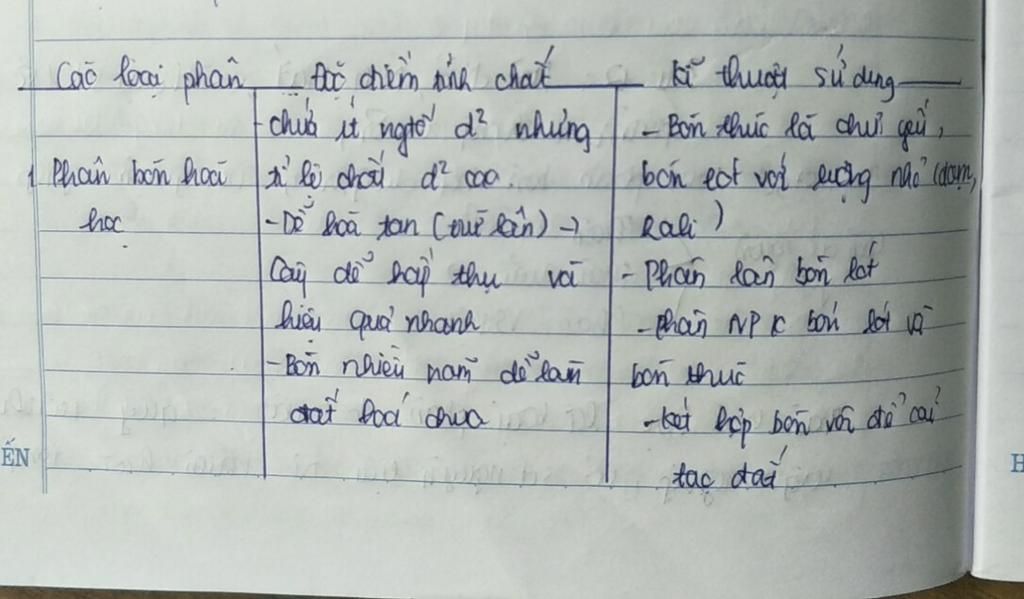 Các loại phân Đặc điểm tính chất Kĩ thuật sử dụng
- chứa ít ngtố d² nhưng - Bón thúc là chủ yếu,
1 Phân bón hoá tỉ lệ chất d² cao. bón lót với lượng nhỏ (đạm,
học - Dễ hoà tan (trừ lân) → Kali)
Cây dễ hấp thụ và - Phân lân bón lót
hiệu quả nhanh - phân NPK bón lót và
- Bón nhiều năm dễ làm bón thúc
đất hoá chua - kết hợp bón vôi để cải
tạo đất
ẾN
H